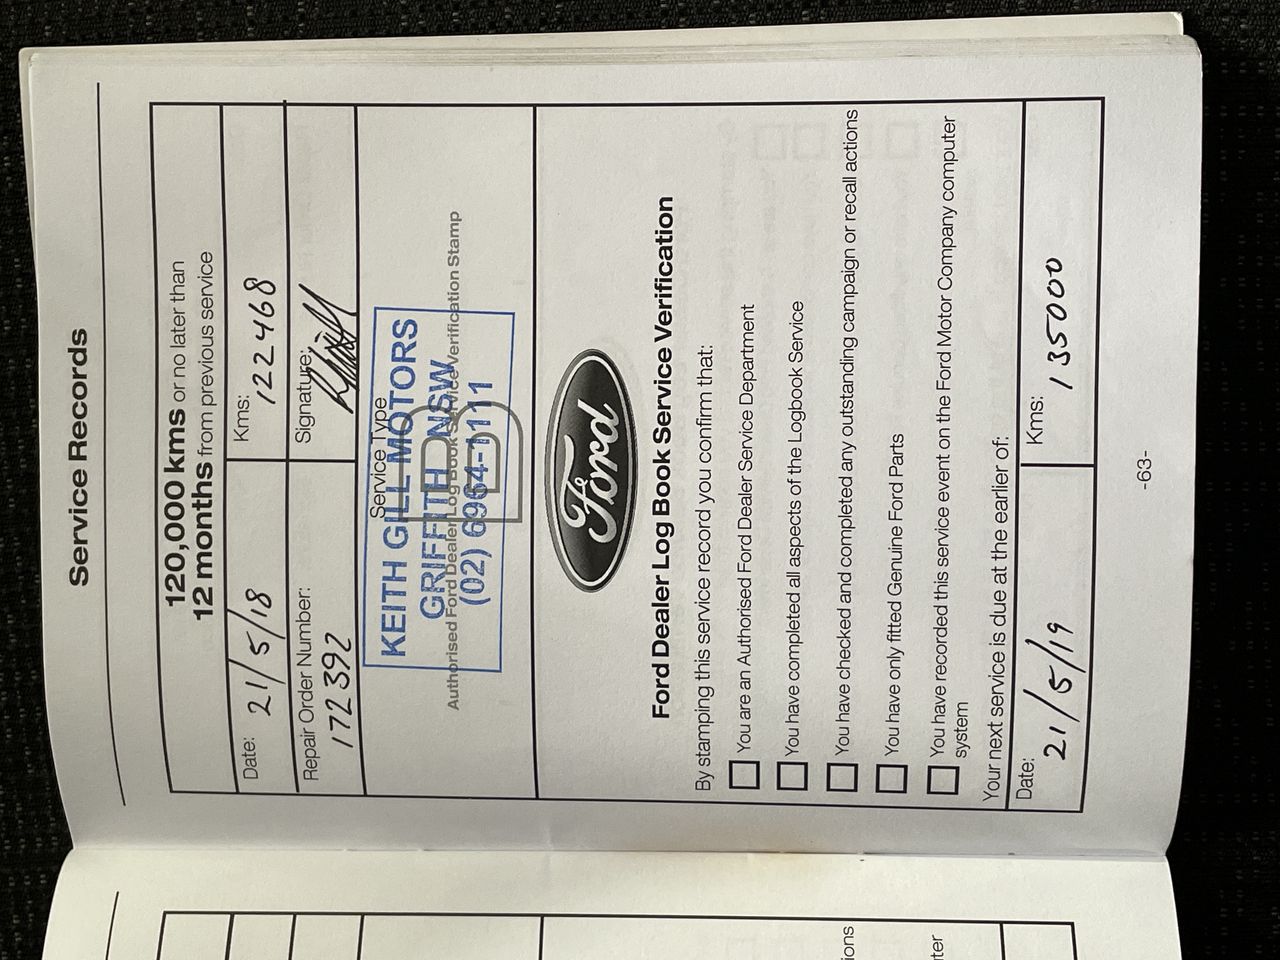 Service Records
120,000 kms or no later than
12 months from previous service
Date: 21/5/18
Kms: 122468
Repair Order Number: 172392
Signature:
Service Type
B
KEITH GILL MOTORS
GRIFFITH NSW
(02) 6964-1111
Authorised Ford Dealer Log Book Service Verification Stamp
Ford
Ford Dealer Log Book Service Verification
By stamping this service record you confirm that:
You are an Authorised Ford Dealer Service Department
You have completed all aspects of the Logbook Service
You have checked and completed any outstanding campaign or recall actions
You have only fitted Genuine Ford Parts
You have recorded this service event on the Ford Motor Company computer
system
Your next service is due at the earlier of:
Date: 21/5/19
Kms: 135000
-63-
ions
ter